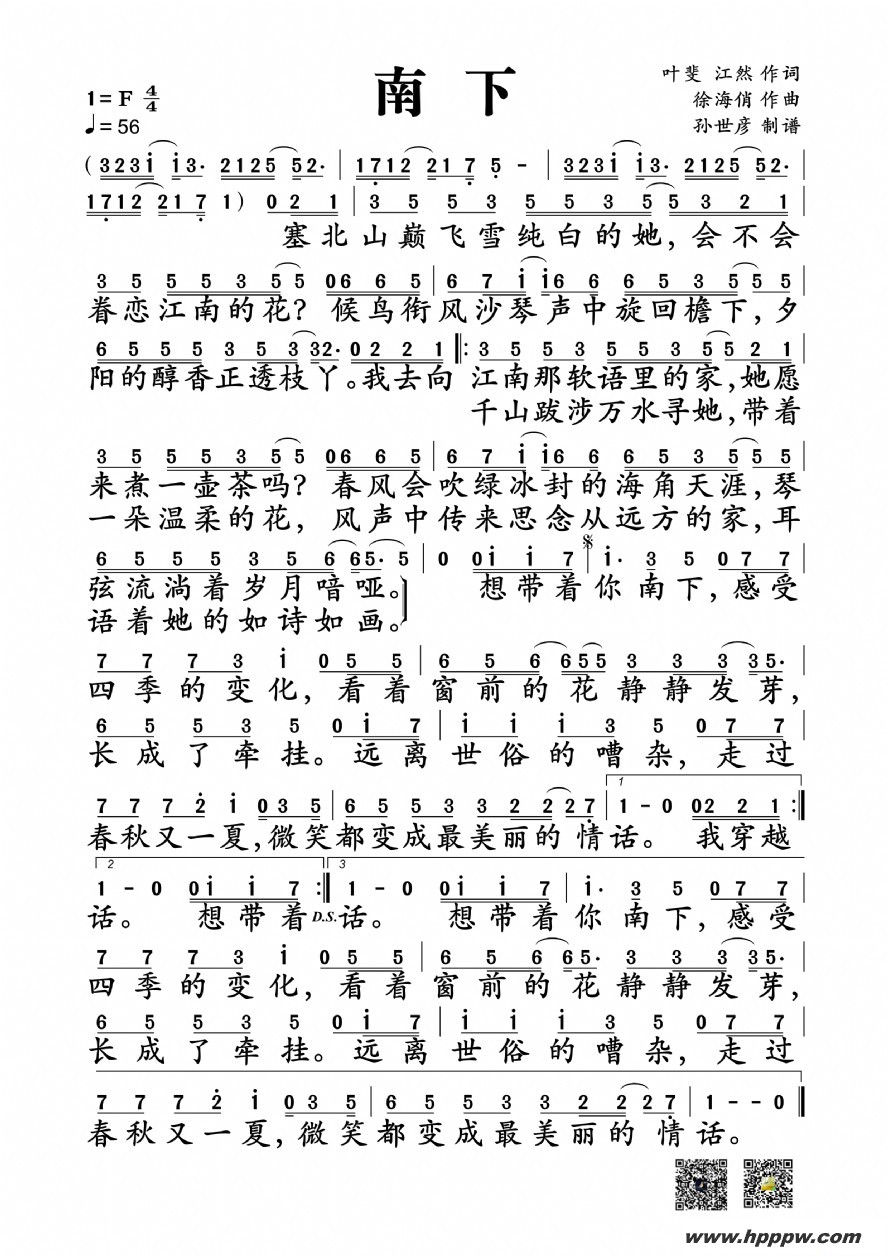 南 下
叶斐 江然 作词
徐海俏 作曲
孙世彦 制谱
1=F 4/4
♩=56
(323i i3· 2125 52· | 1712 217 5 - | 323i i3· 2125 52· |
1712 217 1) 0 2 1 | 3 5 5 3 5 5 5 3 5 5 3 2 1 |
塞北山巅飞雪纯白的她,会不会
3 5 5 5 3 5 5 066 5 | 6 7 i i66 6 5 3 5 52 |
眷恋江南的花?候鸟衔风沙琴声中旋回檐下,夕
6 5 5 5 3 5 3 332· 022 1 ‖: 3 5 5 3 5 5 5 3 5 521 |
阳的醇香正透枝丫。我去向 江南那软语里的家,她愿
千山跋涉万水寻她,带着
3 5 5 5 3 5 5 066 5 | 6 7 i i66 6 5 3 5 5 5 |
来煮一壶茶吗?春风会吹绿冰封的海角天涯,琴
一朵温柔的花,风声中传来思念从远方的家,耳
6 5 5 5 3 5 6 65· 5 | 0 0i i 7 | i· 3 5 0 7 7 |
弦流淌着岁月喑哑。 想带着你南下,感受
语着她的如诗如画。
7 7 7 3 i 0 5 5 | 6 5 6 655 3 3 3 35· |
四季的变化,看着窗前的花静静发芽,
6 5 5 3 5 0 i 7 | i i i 3 5 0 7 7 |
长成了牵挂。远离世俗的嘈杂,走过
1
7 7 7 2 i 0 3 5 | 6 5 5 3 3 2 2 2 2 7 | 1 - 0 02 2 1 :‖
春秋又一夏,微笑都变成最美丽的情话。 我穿越
2 3
1 - 0 0i i 7 :‖ 1 - 0 0i i 7 | i· 3 5 0 7 7 |
话。 想带着D.S.话。 想带着你南下,感受
7 7 7 3 i 0 5 5 | 6 5 6 65· 3 3 3 35· |
四季的变化,看着窗前的花静静发芽,
6 5 5 3 5 0 i 7 | i i i 3 5 0 7 7 |
长成了牵挂。远离世俗的嘈杂,走过
7 7 7 2 i 0 3 5 | 6 5 5 3 3 2 2 2 2 7 | 1 - - 0 ‖
春秋又一夏,微笑都变成最美丽的情话。
www.hpppw.com